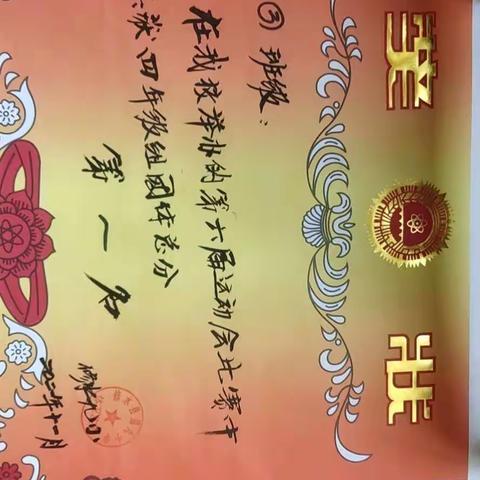 奖状
③班级：
在我校举办的第六届运动会比赛中
荣获四年级组团体总分
第一名
修水九小
二〇二〇年十一月